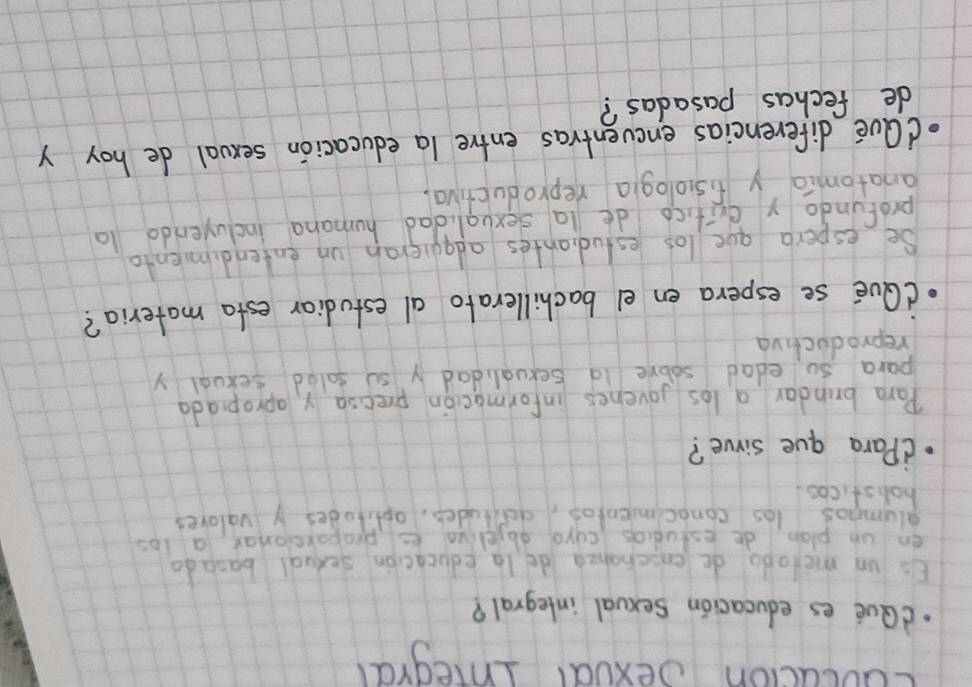 Educación Sexual Integral
• ¿Qué es educación sexual integral?
Es un método de enseñanza de la educación sexual basado
en un plan de estudios cuyo objetivo es proporcionar a los
alumnos los conocimientos, actitudes, aptitudes y valores
holisticos.
• ¿Para que sirve?
Para brindar a los jovenes información precisa y apropiada
para su edad sobre la sexualidad y su salud sexual y
reproductiva
• ¿Qué se espera en el bachillerato al estudiar esta materia?
Se espera que los estudiantes adquieran un entendimiento
profundo y crítico de la sexualidad humana incluyendo la
anatomía y fisiologia reproductiva.
• ¿Qué diferencias encuentras entre la educación sexual de hoy y
de fechas pasadas?